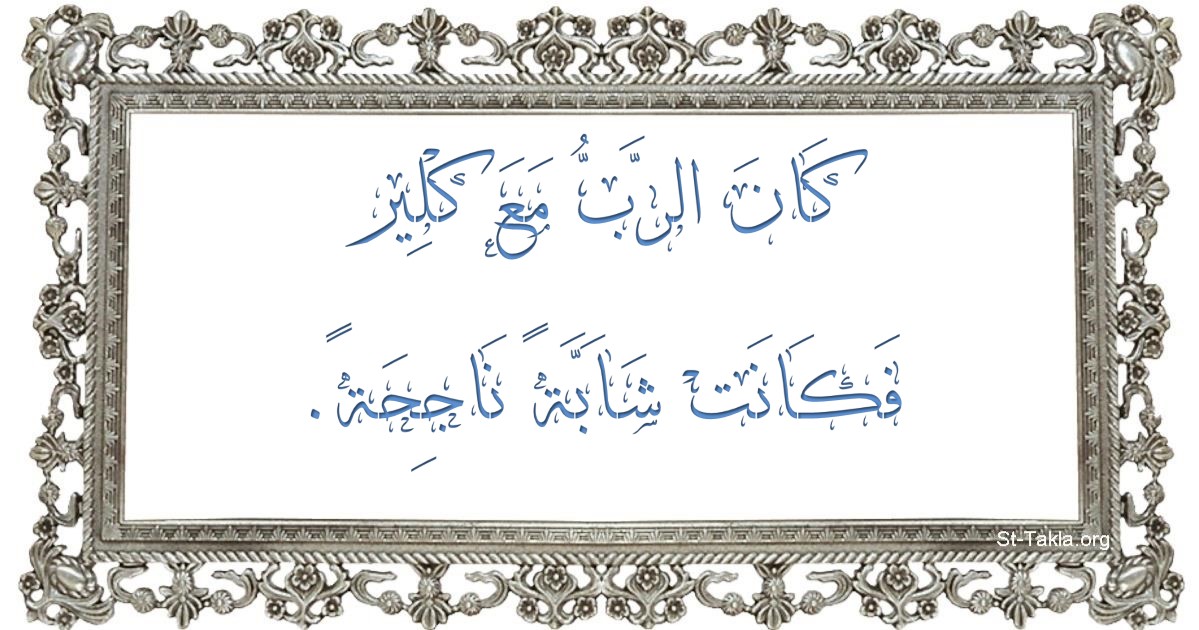 كَانَ الرَّبُّ مَعَ كْلِير
فَكَانَت شَابَّةً نَاجِحَةً.
St-Takla.org